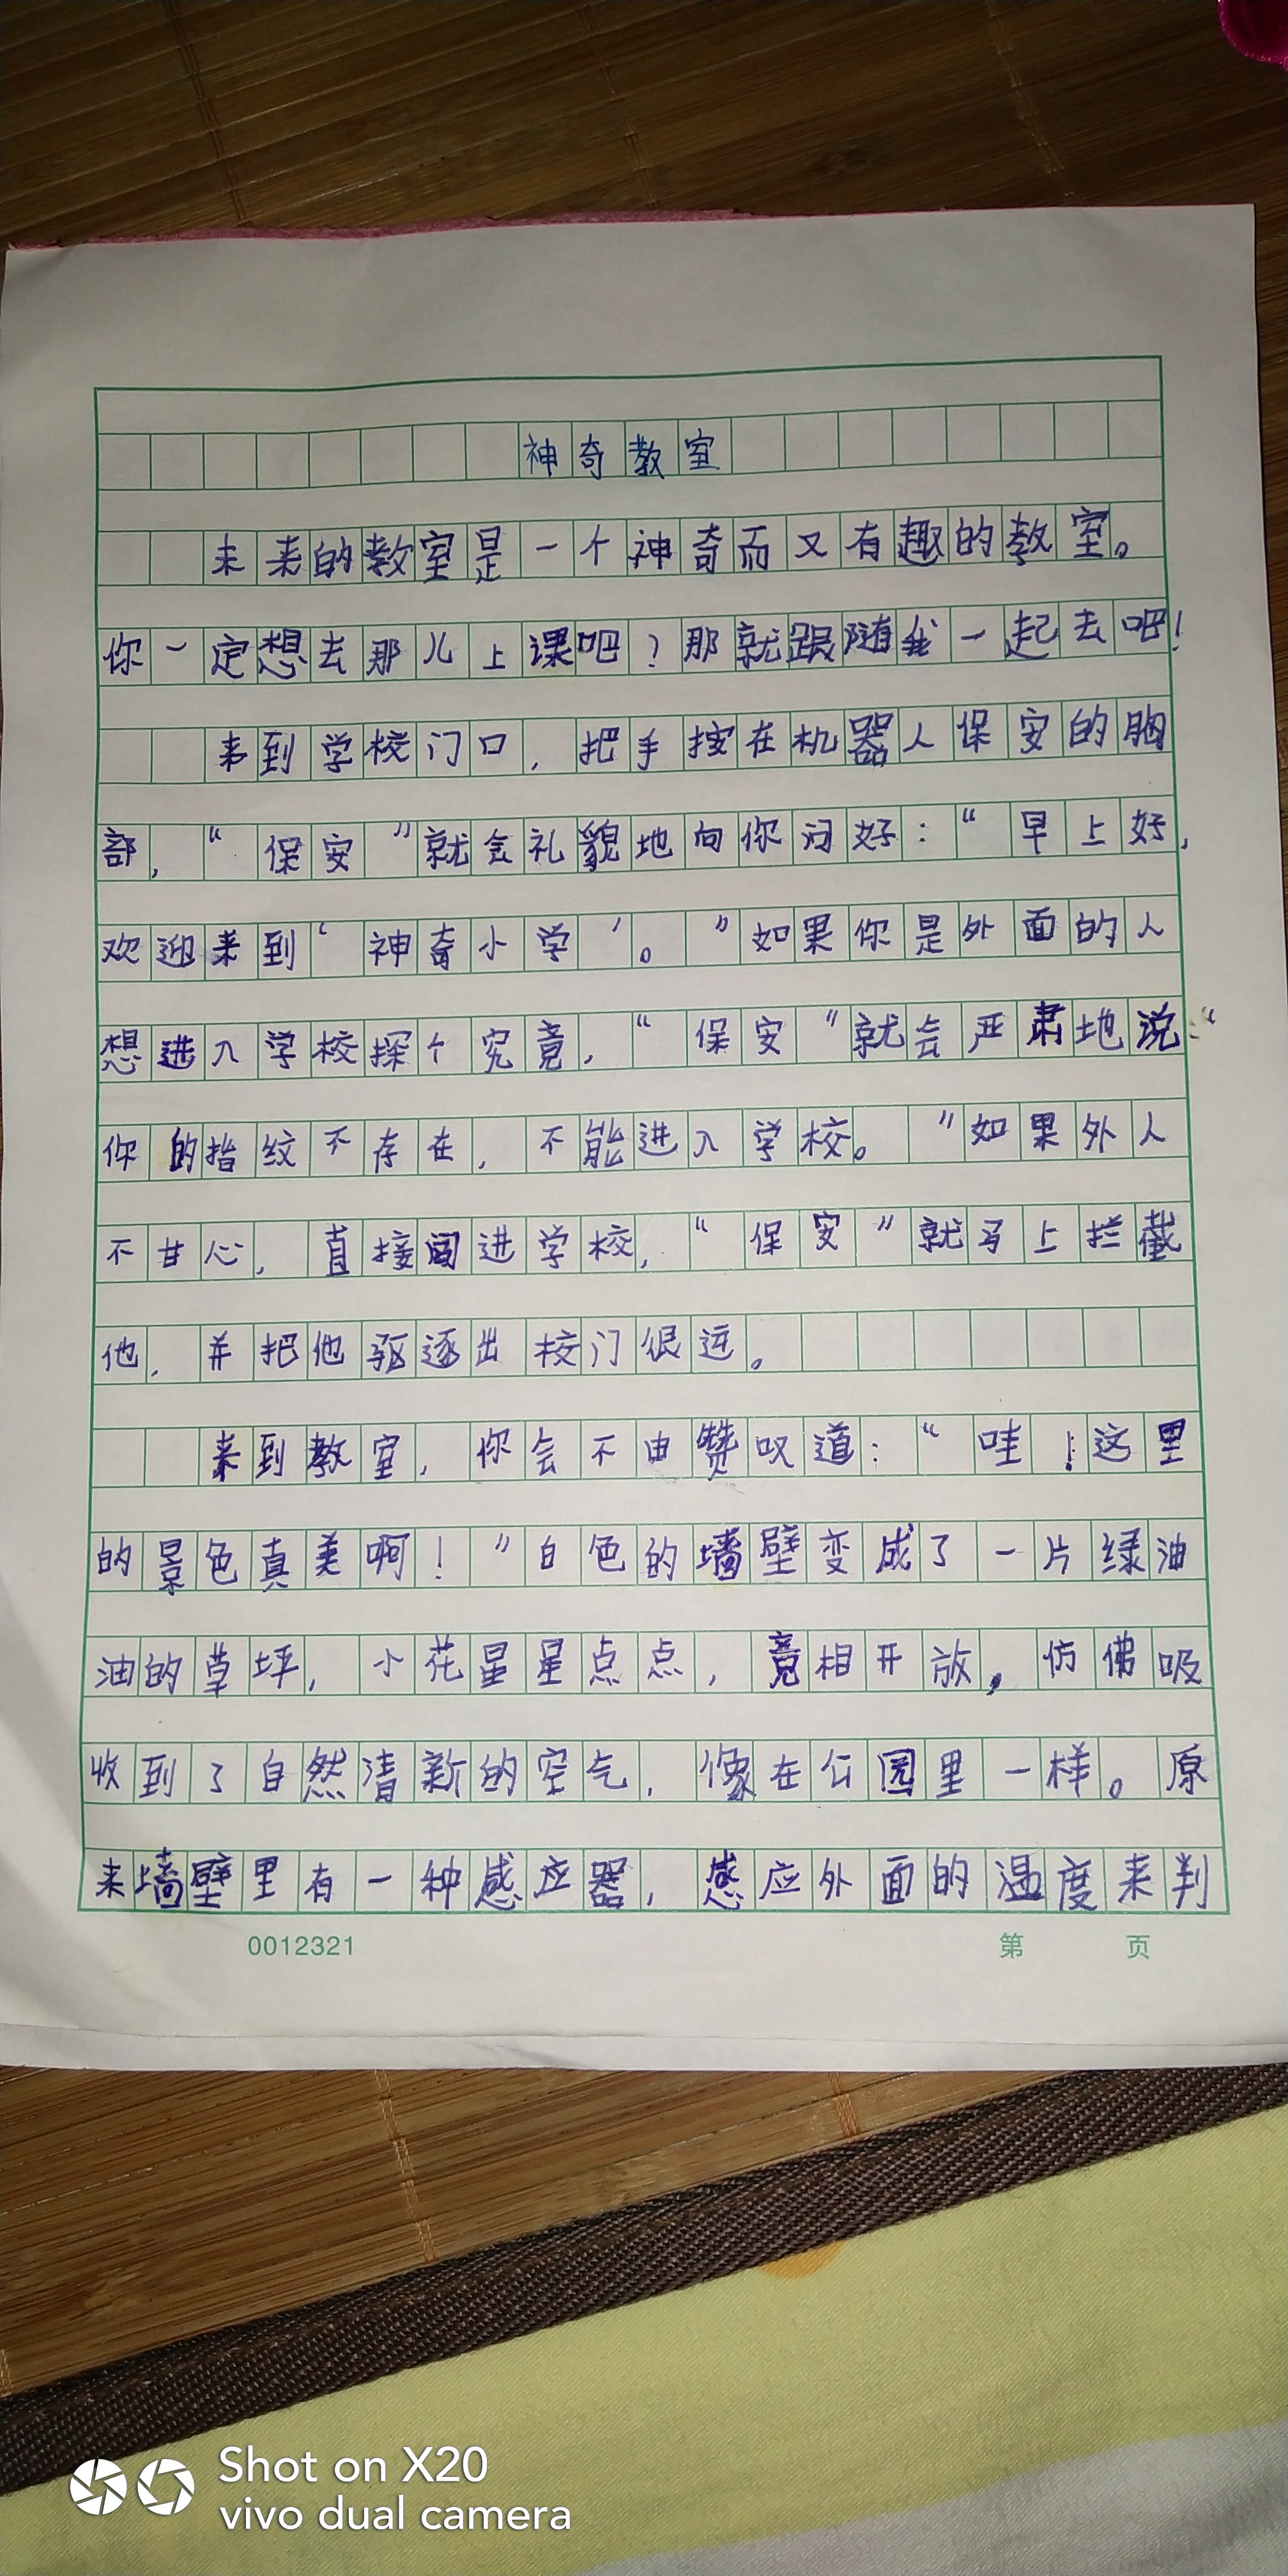 神奇教室
未来的教室是一个神奇而又有趣的教室。
你一定想去那儿上课吧？那就跟随我一起去吧！
来到学校门口，把手按在机器人保安的胸
部，“保安”就会礼貌地向你问好：“早上好，
欢迎来到‘神奇小学’。”如果你是外面的人
想进入学校探个究竟，“保安”就会严肃地说：“
你的指纹不存在，不能进入学校。”如果外人
不甘心，直接闯进学校，“保安”就马上拦截
他，并把他驱逐出校门很远。
来到教室，你会不由赞叹道：“哇！这里
的景色真美啊！”白色的墙壁变成了一片绿油
油的草坪，小花星星点点，竞相开放，仿佛吸
收到了自然清新的空气，像在公园里一样。原
来墙壁里有一种感应器，感应外面的温度来判
0012321 第 页
Shot on X20
vivo dual camera